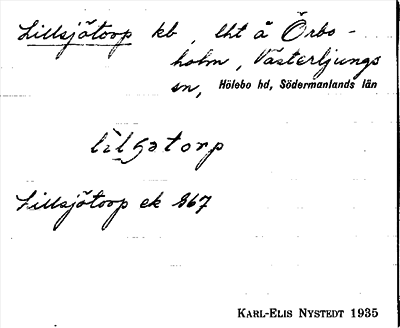 Lillsjötorp kb, lht å Örbo-
holm, Västerljungs
sn, Hölebo hd, Södermanlands län
Lillsjötorp ek 867
KARL-ELIS NYSTEDT 1935